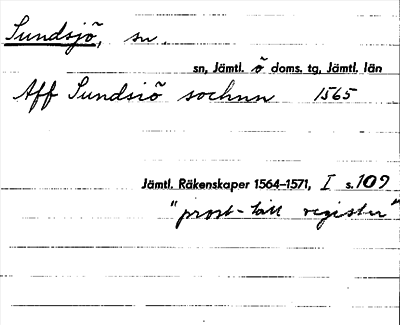 Sundsjö, sn.
sn, Jämtl. ö doms. tg, Jämtl. län
Aff Sundsiö sochnn 1565
Jämtl. Räkenskaper 1564–1571, I s. 109
"prost-tätt register"